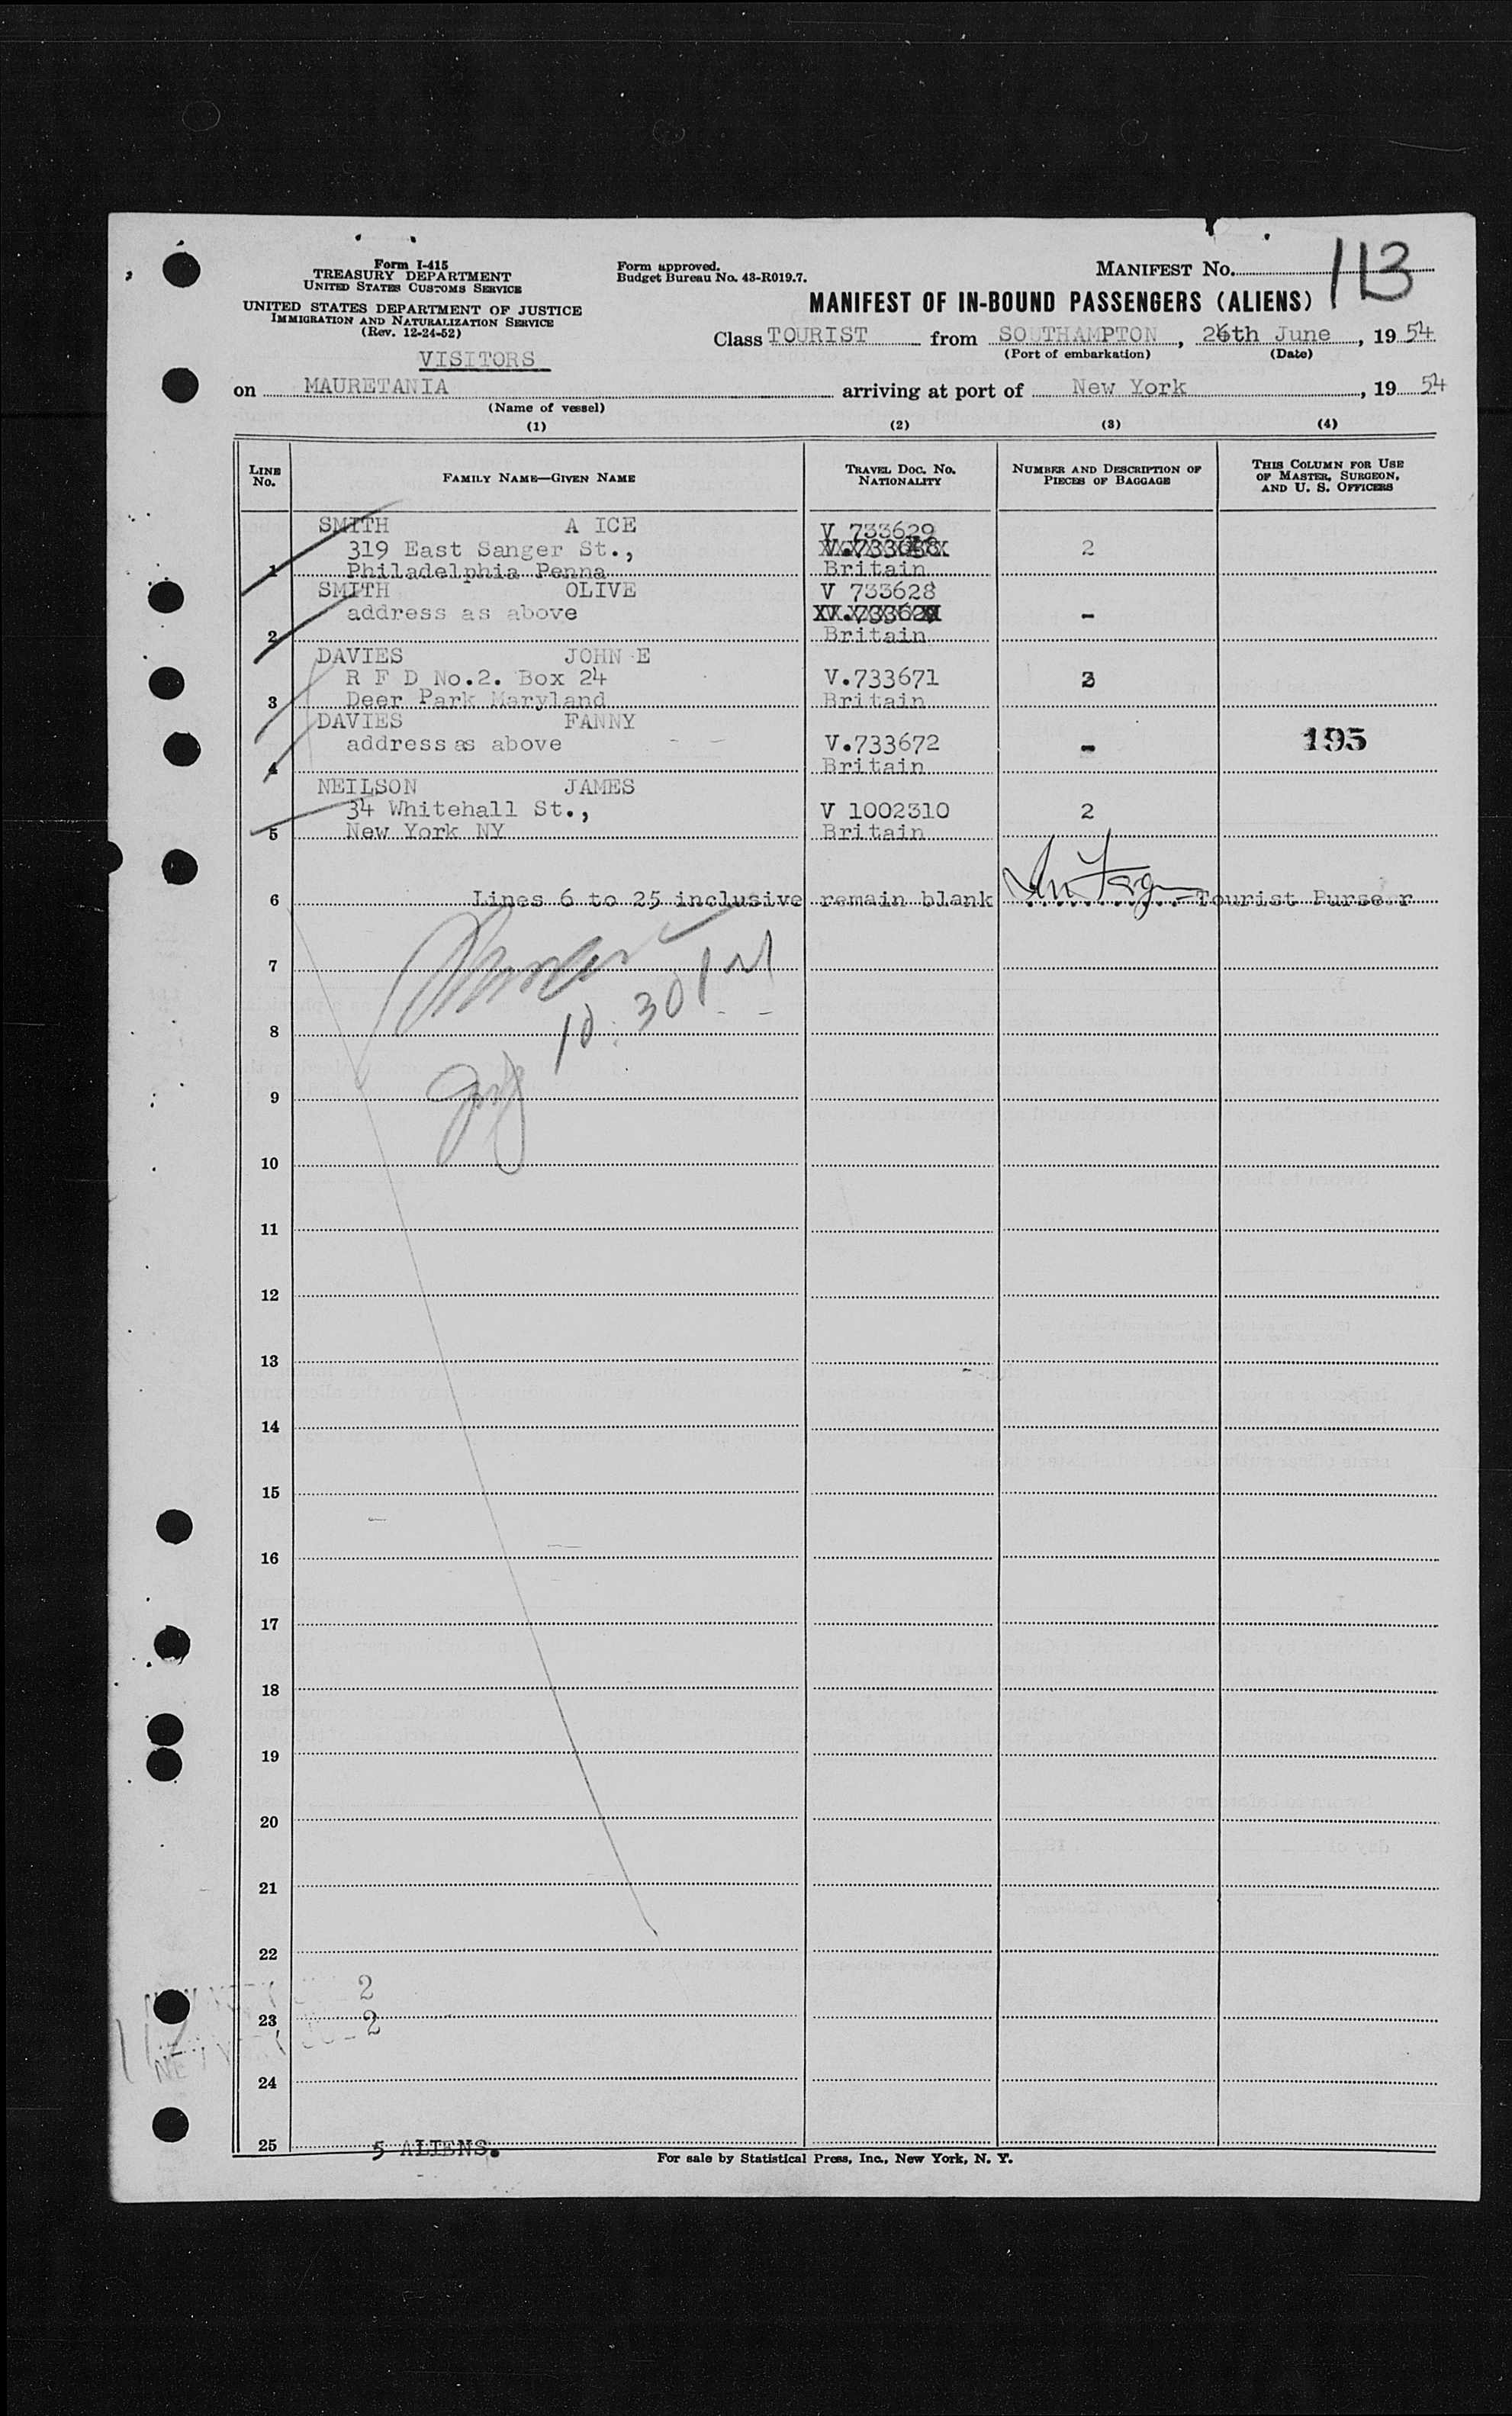 Form I-415
TREASURY DEPARTMENT
UNITED STATES CUSTOMS SERVICE
UNITED STATES DEPARTMENT OF JUSTICE
IMMIGRATION AND NATURALIZATION SERVICE
(Rev. 12-24-52)
Form approved.
Budget Bureau No. 43-R019.7.
MANIFEST No. 113
MANIFEST OF IN-BOUND PASSENGERS (ALIENS)
Class TOURIST from SOUTHAMPTON, 26th June, 1954
(Port of embarkation) (Date)
VISITORS
on MAURETANIA arriving at port of New York, 1954
(Name of vessel)
(1) (2) (3) (4)
LINE No. FAMILY NAME—GIVEN NAME TRAVEL DOC. NO. NATIONALITY NUMBER AND DESCRIPTION OF PIECES OF BAGGAGE THIS COLUMN FOR USE OF MASTER, SURGEON, AND U. S. OFFICERS
SMITH A ICE V 733629
319 East Sanger St., 2
1 Philadelphia Penna Britain
SMITH OLIVE V 733628
address as above -
2 Britain
DAVIES JOHN E
R F D No.2. Box 24 V.733671 3
3 Deer Park Maryland Britain
DAVIES FANNY
address as above V.733672 - 195
4 Britain
NEILSON JAMES
34 Whitehall St., V 1002310 2
5 New York NY Britain
6 Lines 6 to 25 inclusive remain blank Tourist Purser
7
10:30 PM
8
9
10
11
12
13
14
15
16
17
18
19
20
21
22
2
23 2
24
25 5 ALIENS.
For sale by Statistical Press, Inc., New York, N. Y.